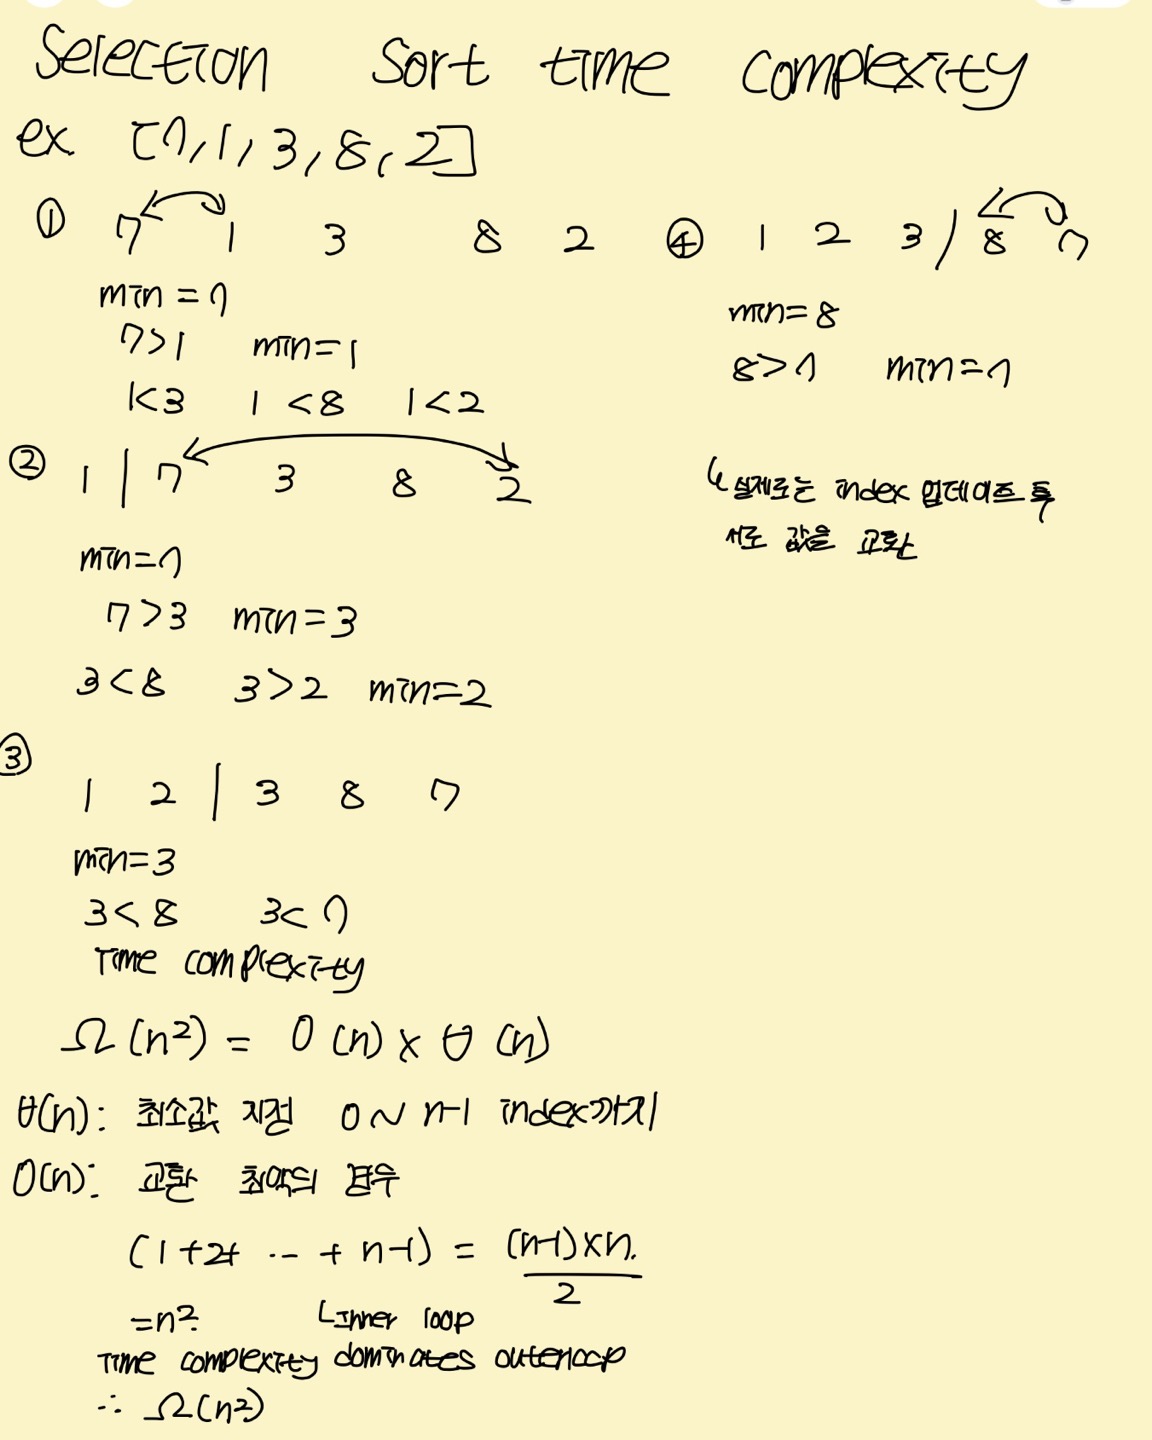 Selection Sort time complexity
ex [7, 1, 3, 8, 2]
① 7 1 3 8 2
min = 7
7>1 min=1
1<3 1<8 1<2
② 1 | 7 3 8 2
min=7
7>3 min=3
3<8 3>2 min=2
③
1 2 | 3 8 7
min=3
3<8 3<7
④ 1 2 3 / 8 7
min=8
8>7 min=7
↳ 실제로는 index 업데이트 후
서로 값을 교환
Time complexity
Ω(n²) = O(n) x θ(n)
θ(n): 최소값 지정 0~n-1 index까지
O(n): 교환 최악의 경우
(1+2+ ... + n-1) = (n-1)xn
2
=n². ㄴinner loop
Time complexity dominates outerloop
∴ Ω(n²)